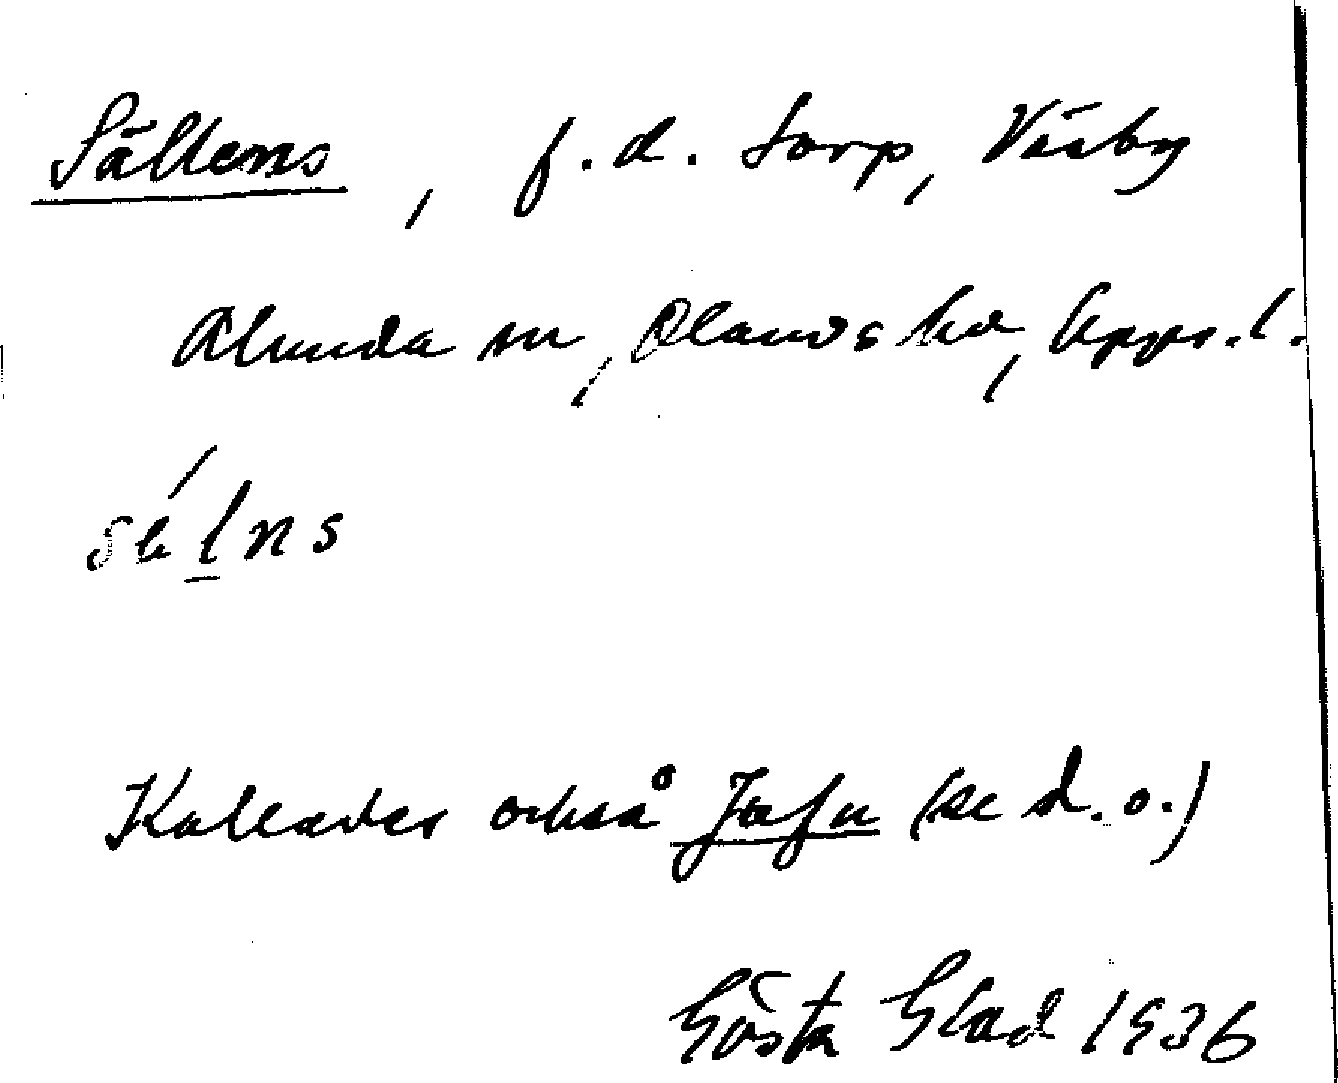 Sällens, f.d. torp, Väsby
Alunda sn, Olands hd, Upps. l.
sélns
Kallades också Jafu (se d.o.)
Gösta Glad 1936